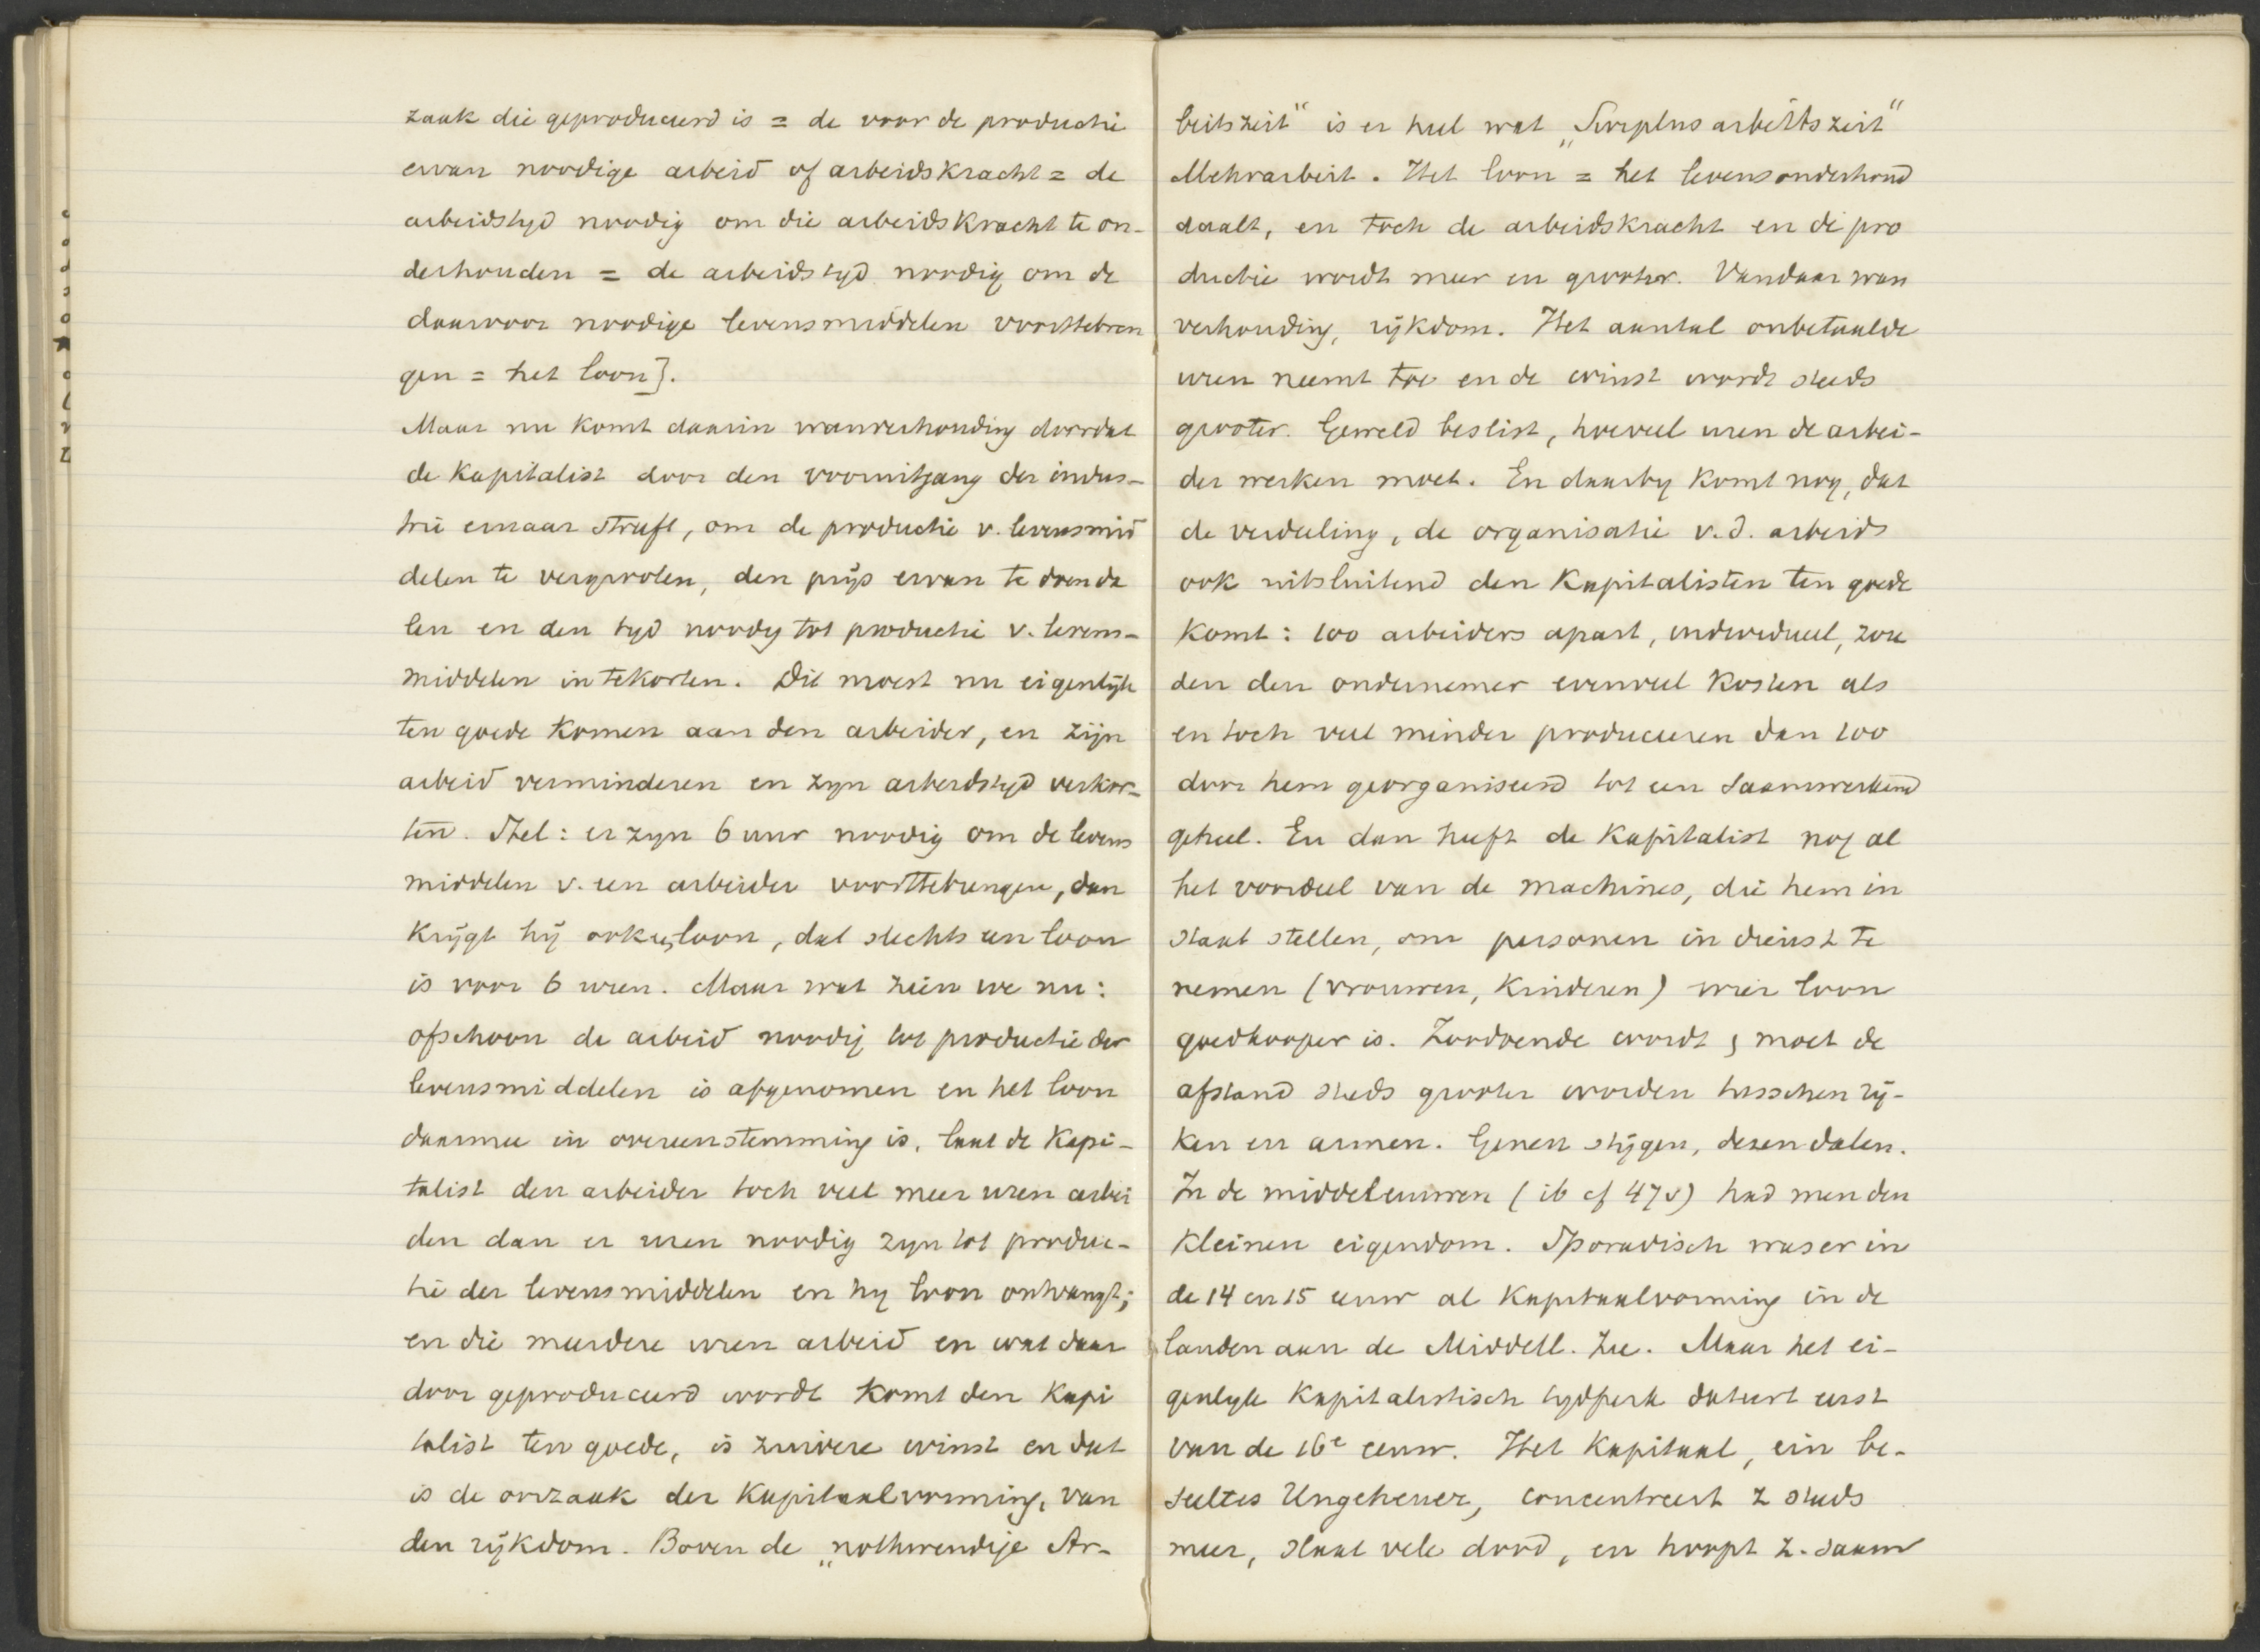 zaak die geproduceerd is = de voor de productie
ervan noodige arbeid of arbeidskracht = de
arbeidstyd noodig om die arbeidskracht te on-
derhouden = de arbeidstyd noodig om de
daarvoor noodige levensmiddelen voorttebren
gen = het loon].
Maar nu komt daarin wanverhouding doordat
de kapitalist door den vooruitgang der indus-
trie ernaar streeft, om de productie v. levensmid
delen te vergrooten, den prijs ervan te doen da
len en den tyd noodig tot productie v. levens-
middelen intekorten. Dit moest nu eigenlijk
ten goede komen aan den arbeider, en zijn
arbeid verminderen en zyn arbeidstyd verkor-
ten. Stel: er zyn 6 uur noodig om de levens
middelen v. een arbeider voorttebrengen, dan
krijgt hij ook een loon, dat slechts een loon
is voor 6 uren. Maar wat zien we nu:
ofschoon de arbeid noodig tot productie der
levensmiddelen is afgenomen en het loon
daarmee in overeenstemming is, laat de kapi-
talist den arbeider toch veel meer uren arbei
den dan er uren noodig zyn tot produc-
tie der levensmiddelen en hy loon ontvangt;
en die meerdere uren arbeid en wat daar
door geproduceerd wordt komt den kapi
talist ten goede, is zuivere winst en dat
is de oorzaak der kapitaalvorming, van
den rijkdom. Boven de „nothwendige Ar-
beitszeit" is er heel wat „Surplus arbeitszeit"
Mehrarbeit. Het loon = het levensonderhoud
daalt, en toch de arbeidskracht en de pro
ductie wordt meer en grooter. Vandaar wan
verhouding, rijkdom. Het aantal onbetaalde
uren neemt toe en de winst wordt steeds
grooter. Geweld beslist, hoeveel uren de arbei-
der werken moet. En daarby komt nog, dat
de verdeeling, de organisatie v.d. arbeids
ook uitsluitend den kapitalisten ten goede
komt: 100 arbeiders apart, individueel, zou
den den ondernemer evenveel kosten als
en toch veel minder produceeren dan 100
door hem georganiseerd tot een saamwerkend
geheel. En dan heeft de kapitalist nog al
het voordeel van de machines, die hem in
staat stellen, om personen in dienst te
nemen (vrouwen, kinderen) wier loon
goedkooper is. Zoodoende wordt & moet de
afstand steeds grooter worden tusschen rij-
ken en armen. Genen stijgen, dezen dalen.
In de middeleeuwen (ib cf 47v) had men den
kleinen eigendom. Sporadisch was er in
de 14 en 15 eeuw al kapitaalvorming in de
landen aan de Middell. Zee. Maar het ei-
genlyk kapitalistisch tydperk dateert eerst
van de 16e eeuw. Het kapitaal, ein be-
seeltes Ungeheuer, concentreert z steeds
meer, slaat vele dood, en hoopt z. saam